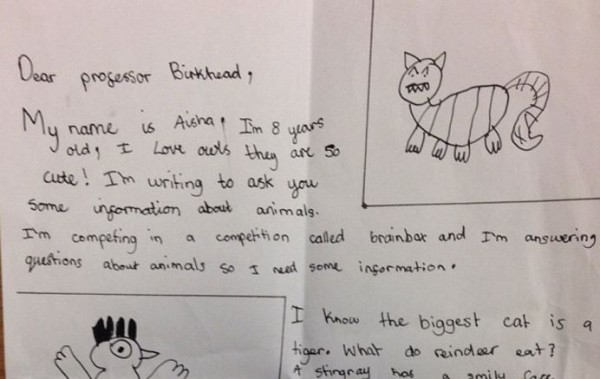 Dear professor Birkhead,
My name is Aisha, I'm 8 years
old, I Love owls they are so
cute! I'm writing to ask you
some information about animals.
I'm competing in a competition called brainbox and I'm answering
questions about animals so I need some information.
I know the biggest cat is a
tiger. What do reindeer eat?
A stingray has a smily face